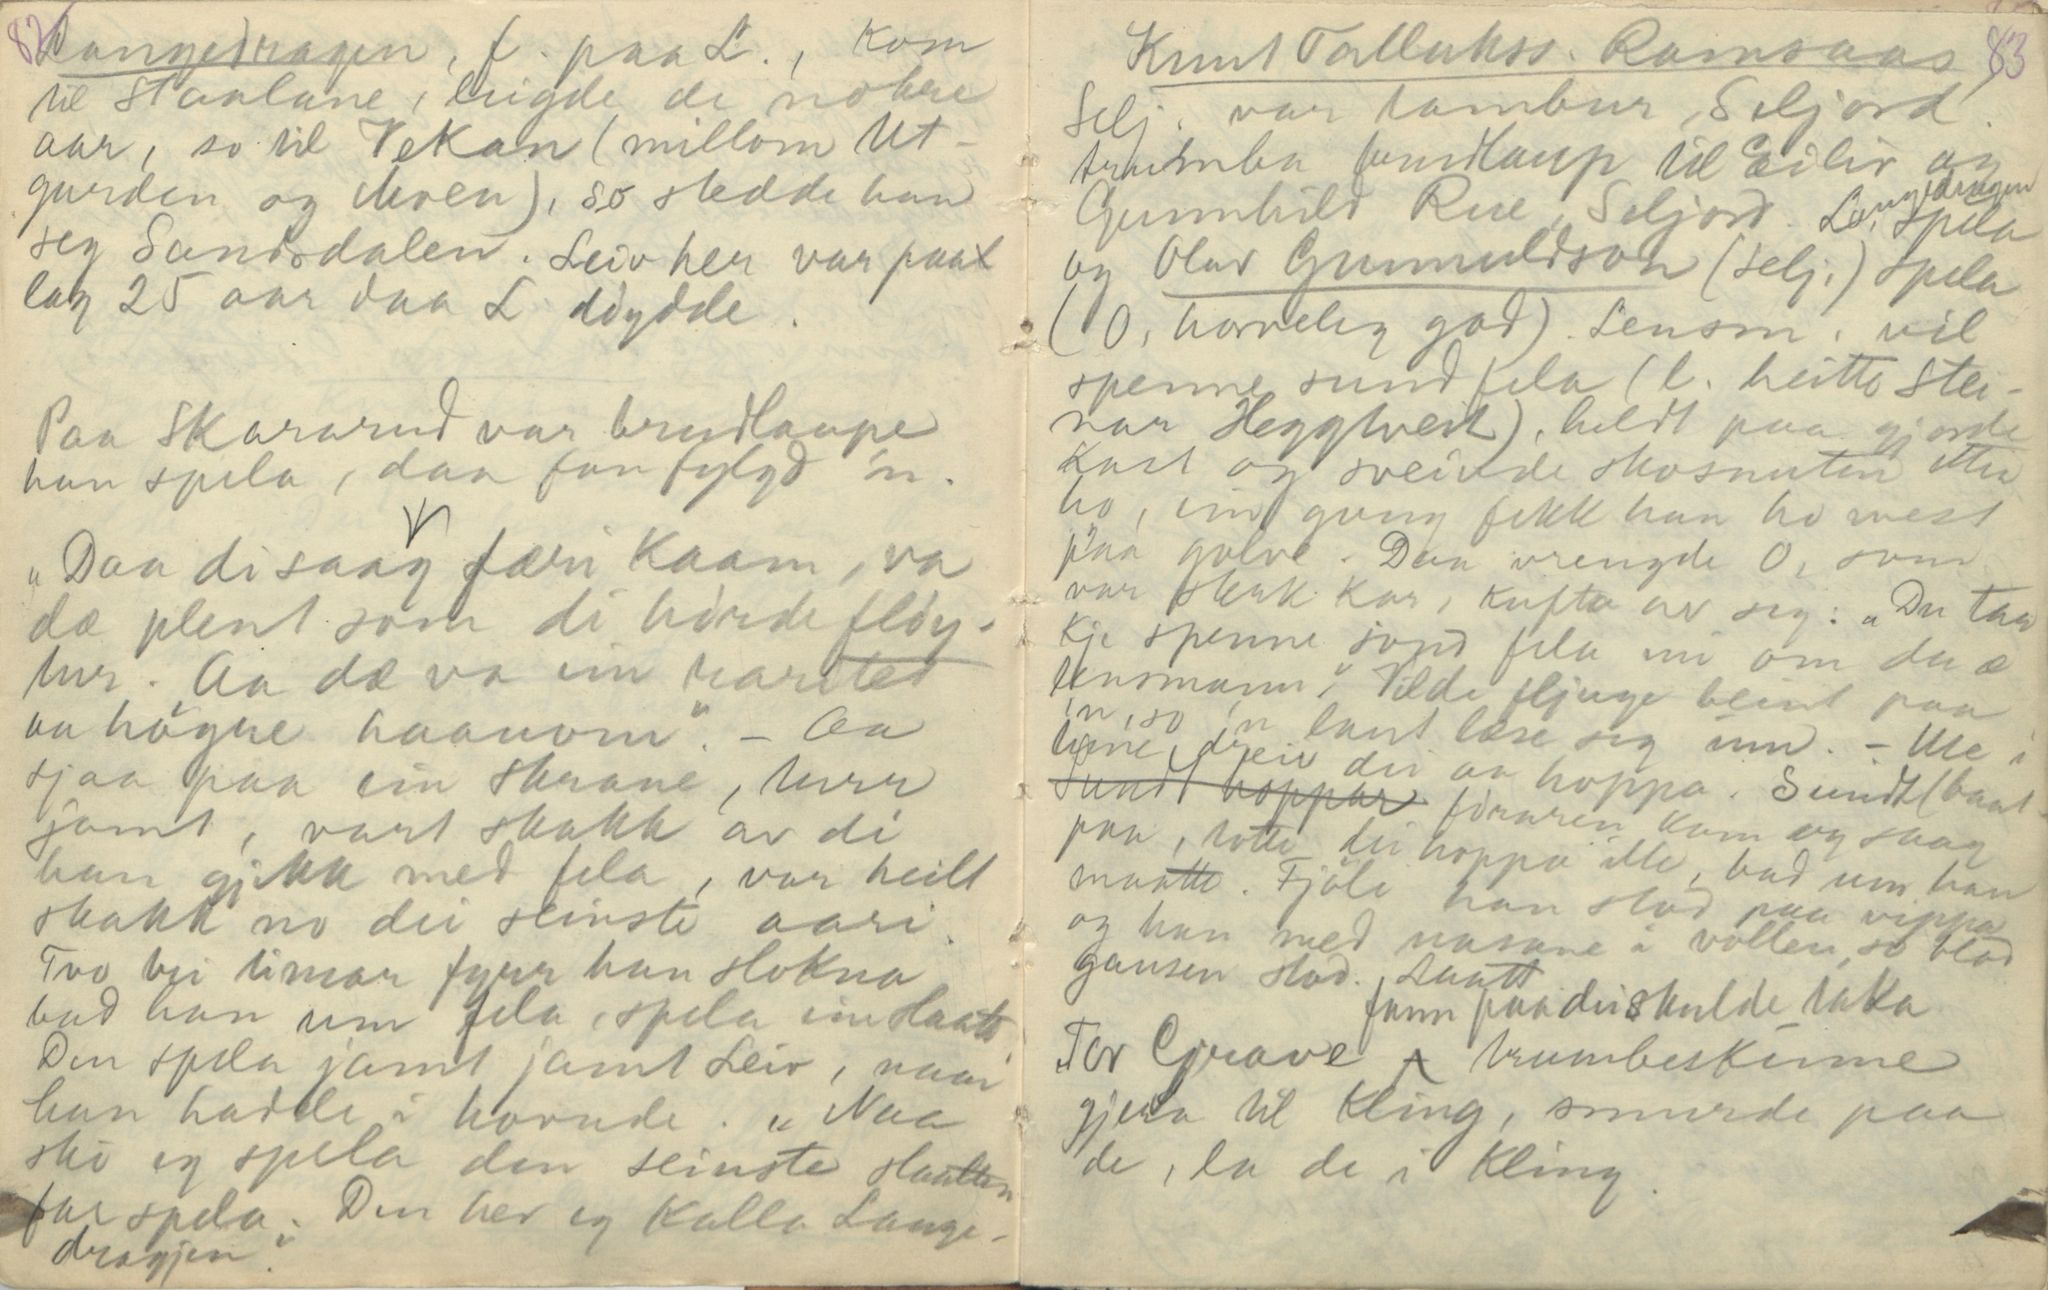 82
Langedragen, f. paa L., kom
til Staalane, leigde de nokre
aar, so til Vekan (millom Ut-
garden og Moen), so stedde han
seg Sundsdalen. Leiv her var paa
lag 25 aar daa L. döydde.
Paa Skararud var brudlaupe
han spela, daa fan fylgd 'n.
"Daa di saag færi kaam, va
dæ plent som di hörde flöy-
tur. Aa dæ va ein rarited
aa högre haanom". – Aa
sjaa paa ein skrane, turr
jamt, vart skakk av di
han gjekk med fela, var heilt
skakk no dei seinste aari.
Tvo tri timar fyrr han slokna
bad han um fela, spela ein slaatt.
Den spela jamt jamt Leiv, naar
han hadde i hovude. "Naa
ski eg spela den seinste slaatten
far spela". Den her eg kalla Lange-
dragjen.
83
Knut Tallakss. Ramsaas,
Selj. var tambur, Seljord.
trumba brudlaup til Eiliv og
Gunnhild Rue, Seljord. Langedragen
L. spela
og Olav Gunnuldson (Selj.) spela
(O, hoveleg god). Lensm. vil
spenne sund fela (l. heitte Stei-
nar Heggtveit), heldt paa gjorde
kast og sveivde skosnuten etter
ho, ein gong fekk han ho mest
paa golve. Daa vrengde O, som
var sterk kar, kufta av seg: "Du taa
kje spenne sond fela mi om du æ
lensmann". Vilde fljuge beint paa
'n, so 'n laut læse seg inn. – Ute i
tune, dreiv dei aa hoppa. Sundt (baat-
Sundt hoppar föraren kom og saag
paa, totte dei hoppa ille, bad um han
maatte. Fjöle han stod paa vippa
og han med nasane i vollen, so blod
gausen stod. Slaatt
fann paa dei skulde taka
"Tor Grave trumbeskinne
gjera til kling, smurde paa
de, la de i kling.